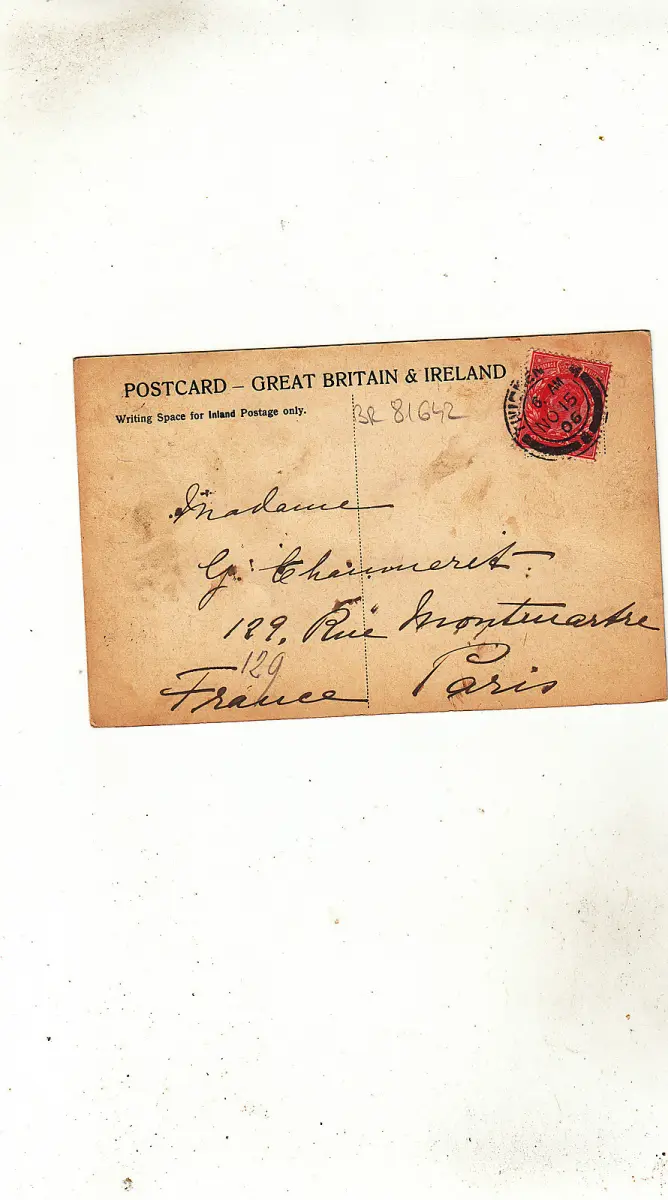 POSTCARD – GREAT BRITAIN & IRELAND
Writing Space for Inland Postage only.
BR 81642
8 AM
NO 15
06
Madame
G. Chauvneret.
129, Rue Montmartre
129
France Paris